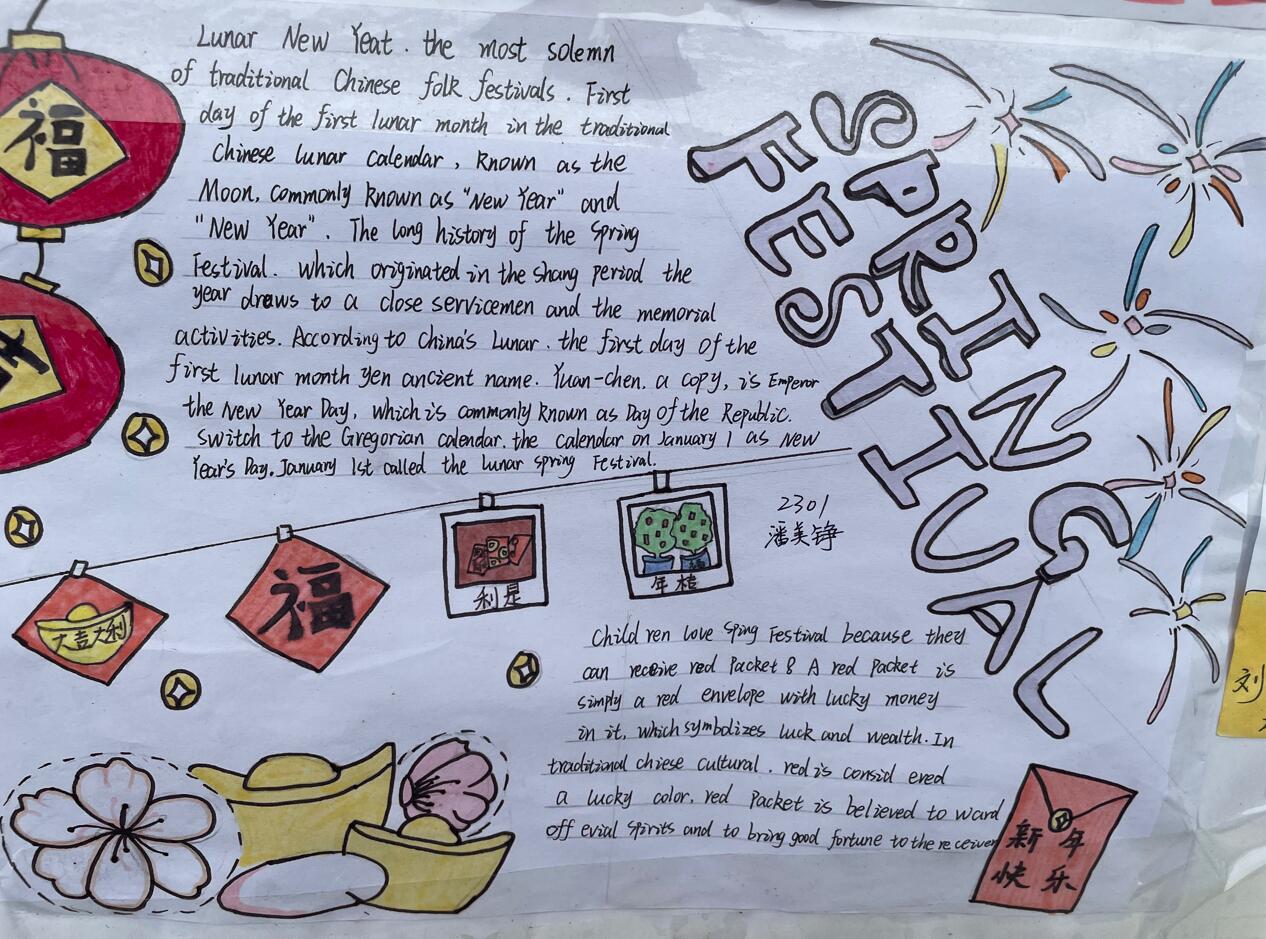 Lunar New Yeat. the most solemn
of traditional Chinese folk festivals. First
day of the first lunar month in the traditional
Chinese lunar calendar, known as the
Moon, commonly known as "New Year" and
"New Year". The long history of the Spring
Festival. which originated in the shang period the
year draws to a close servicemen and the memorial
activities. According to China's Lunar. the first day of the
first lunar month yen ancient name. Yuan-chen. a copy, is Emperor
the New Year Day, which is commonly known as Day of the Republic.
switch to the Gregorian calendar. the calendar on January 1 as New
Year's Day. January 1st called the lunar spring Festival.
SPRING
FESTIUAL
福
年
大吉大利
福
利是
年桔
2301
潘美铮
Child ren love Sping Festival because they
can receive red Packet & A red Packet is
simply a red envelope with lucky money
in it, which symbolizes luck and wealth. In
traditional chiese cultural. red is consid ered
a lucky color. red Packet is believed to ward
off evial spirits and to bring good fortune to the receiver
新年
快乐
刘